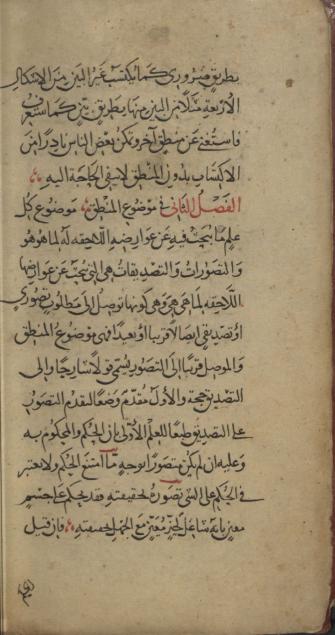 بطريق ضروري كما يكتسب غير البين من الاشكال
الاربعة مثلا من البين منها بطريق بين كما ستعرف
فاستغنى عن منطق آخر وتمكن بعض الناس نادرا من
الاكتساب بدون المنطق لا ينفي الحاجة اليه
الفصل الثاني في موضوع المنطق موضوع كل
علم ما يبحث فيه عن عوارضه اللاحقة له لما هو هو
والتصورات والتصديقات هي التي يبحث عن عوارضها
اللاحقة لما هي هي وهي كونها توصل الى مطلوب تصوري
او تصديقي ايصالا قريبا او بعيدا فهي موضوع المنطق
والموصل قريبا الى التصور يسمى قولا شارحا والى
التصديق حجة والاول مقدم وضعا لتقدم التصور
على التصديق طبعا للعلم الاولي بان الحكم والمحكوم به
وعليه ان لم يكن متصورا بوجه ما امتنع الحكم ولا يعتبر
في الحكم على الشئ تصوره لحقيقته فقد يحكم على جسم
معين بانه شاغل لحيز معين مع الجهل بحقيقته فان قيل